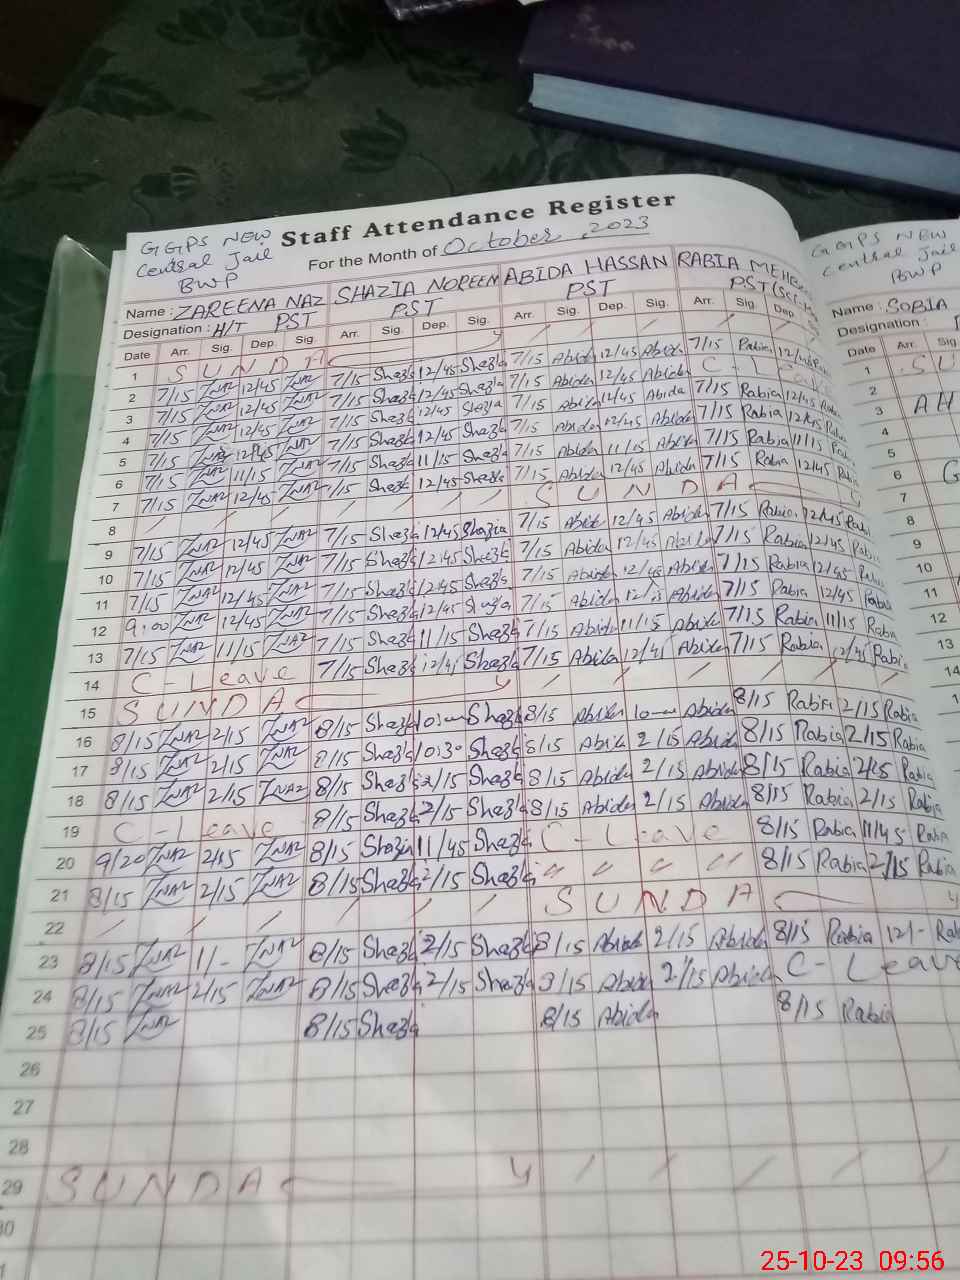 GGPS NEW Staff Attendance Register
Central Jail For the Month of October, 2023
BWP
Name : ZAREENA NAZ SHAZIA NOREEN ABIDA HASSAN RABIA
Designation : H/T PST PST PST PST
Date Arr. Sig. Dep. Sig. Arr. Sig. Dep. Sig. Arr. Sig. Dep. Sig. Arr. Sig. Dep.
1 SUNDAY
2 7/15 ZNAZ 12/45 ZNAZ 7/15 Shazia 12/45 Shazia 7/15 Abida 12/45 Abida 7/15 Rabia
3 7/15 ZNAZ 12/45 ZNAZ 7/15 Shazia 12/45 Shazia 7/15 Abida 12/45 Abida C - Leave
4 7/15 ZNAZ 12/45 ZNAZ 7/15 Shazia 12/45 Shazia 7/15 Abida 12/45 Abida 7/15 Rabia 12/45 Rabia
5 7/15 ZNAZ 12/45 ZNAZ 7/15 Shazia 12/45 Shazia 7/15 Abida 12/45 Abida 7/15 Rabia 12/45 Rabia
6 7/15 ZNAZ 11/15 ZNAZ 7/15 Shazia 11/15 Shazia 7/15 Abida 11/15 Abida 7/15 Rabia 11/15 Rabia
7 7/15 ZNAZ 12/45 ZNAZ 7/15 Shazia 12/45 Shazia 7/15 Abida 12/45 Abida 7/15 Rabia 12/45 Rabia
8 SUNDAY
9 7/15 ZNAZ 12/45 ZNAZ 7/15 Shazia 12/45 Shazia 7/15 Abida 12/45 Abida 7/15 Rabia 12/45 Rabia
10 7/15 ZNAZ 12/45 ZNAZ 7/15 Shazia 12:45 Shazia 7/15 Abida 12/45 Abida 7/15 Rabia 12/45 Rabia
11 7/15 ZNAZ 12/45 ZNAZ 7/15 Shazia 12:45 Shazia 7/15 Abida 12/45 Abida 7/15 Rabia 12/45 Rabia
12 9:00 ZNAZ 12/45 ZNAZ 7/15 Shazia 12/45 Shazia 7/15 Abida Abida 7/15 Rabia 12/45 Rabia
13 7/15 ZNAZ 11/15 ZNAZ 7/15 Shazia 11/15 Shazia 7/15 Abida 11/15 Abida 7/15 Rabia 11/15 Rabia
14 C - Leave 7/15 Shazia 12/45 Shazia 7/15 Abida 12/45 Abida 7/15 Rabia 12/45 Rabia
15 SUNDAY
16 8/15 ZNAZ 2/15 ZNAZ 8/15 Shazia Shazia 8/15 Abida Abida 8/15 Rabia 2/15 Rabia
17 8/15 ZNAZ 2/15 ZNAZ 8/15 Shazia 10:30 Shazia 8/15 Abida 2/15 Abida 8/15 Rabia 2/15 Rabia
18 8/15 ZNAZ 2/15 ZNAZ 8/15 Shazia 2/15 Shazia 8/15 Abida 2/15 Abida 8/15 Rabia 2/15 Rabia
19 C - Leave 8/15 Shazia 2/15 Shazia 8/15 Abida 2/15 Abida 8/15 Rabia 2/15 Rabia
20 9/20 ZNAZ 2/15 ZNAZ 8/15 Shazia 11/45 Shazia C - Leave 8/15 Rabia 11/45 Rabia
21 8/15 ZNAZ 2/15 ZNAZ 8/15 Shazia 2/15 Shazia " " " " 8/15 Rabia 2/15 Rabia
22 SUNDAY
23 8/15 ZNAZ 1/- ZNAZ 8/15 Shazia 2/15 Shazia 8/15 Abida 2/15 Abida 8/15 Rabia 12/- Rabia
24 8/15 ZNAZ 2/15 ZNAZ 8/15 Shazia 2/15 Shazia 8/15 Abida 2/15 Abida C - Leave
25 8/15 ZNAZ 8/15 Shazia 8/15 Abida 8/15 Rabia
26
27
28
29 SUNDAY
30
GGPS NEW
Central Jail
BWP
Name : SOBIA
Designation :
Date Arr. Sig
1 SU
2
3 AH
4
5
6 G
7
8
9
10
11
12
13
14
25-10-23 09:56